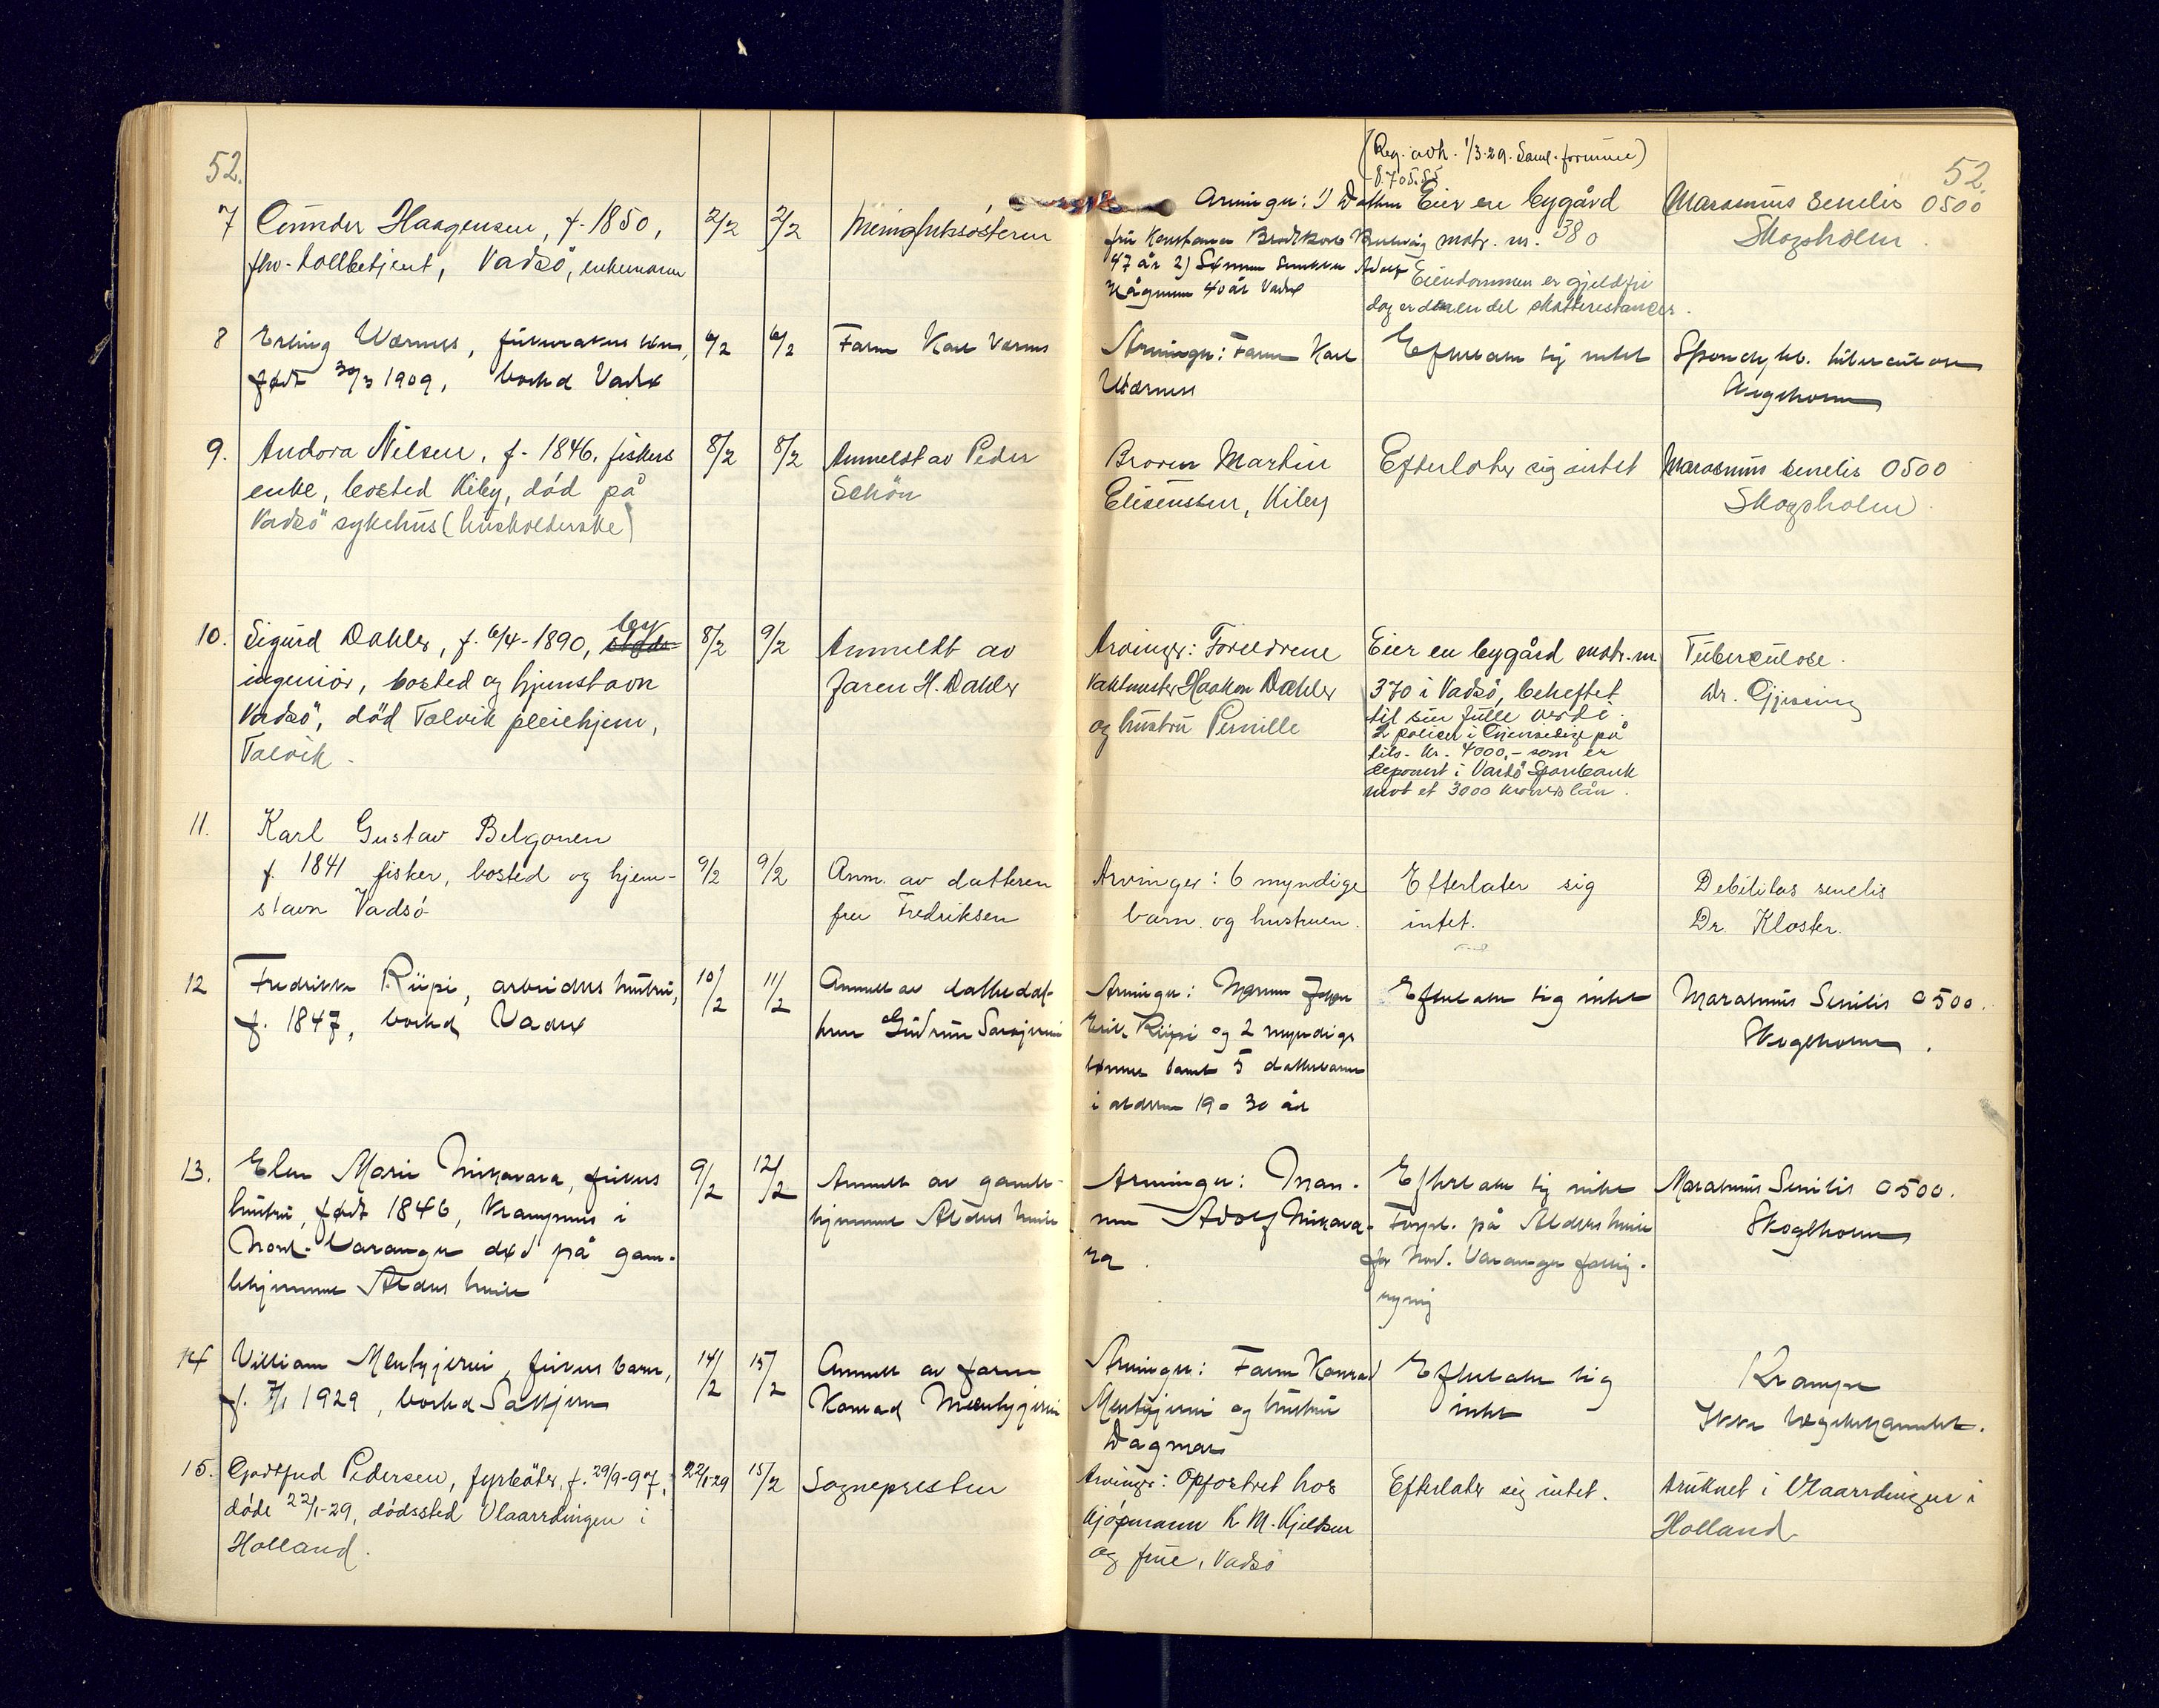 52.
(Reg. avh. 1/3-29. Saml. formue)
8.705.55
52.
7 Haagensen, f. 1850, 2/2 2/2 Menighetssøsteren Arvinger: 1) Eier en bygård Marasmus senelis 0500
fhv. tollbetjent, Vadsö, enkemann fru matr. nr. 380 Skogsholm
47 år 2) Sønnen Adolf Eiendommen er gjeldfri
40 år Vadsø dog er den en del skatterestancer.
8 Erling Wærnes, fiskerens sønn, 6/2 6/2 Faren Karl Værnes Arvinger: Faren Karl Efterlater sig intet
født 30/3 1909, bosted Vadsø Wærnes Skogsholm
9. Andora Nilsen, f. 1846, fiskers 8/2 8/2 Anmeldt av Peder Broren Martin Efterlater sig intet Marasmus senelis 0500
enke, bosted Kiby, död på Schön Elisenssen, Kiby Skogsholm
Vadsö sykehus (husholderske)
by
10. Sigurd Dahler, f. 6/4-1890, 8/2 9/2 Anmeldt av Arvinger: Foreldrene Eier en bygård matr. nr. Tuberculose.
ingeniör, bosted og hjemstavn faren H. Dahler Vaktmester Haakon Dahler 370 i Vadsö, beheftet Dr. Gjessing
Vadsö, död Talvik pleiehjem, og hustru Pernille til sin fulle verdi.
Talvik. 2 poliser i Gjensidige på
tils. kr. 4000,- som er
deponert i Vadsö Sparebank
mot et 3000 kroners lån.
11. Karl Gustav Belgonen
f. 1841 fisker, bosted og hjem- 9/2 9/2 Anm. av datteren Arvinger: 6 myndige Efterlater sig Debilitas senelis
stavn Vadsö fru Fredriksen barn og hustruen. intet. Dr. Kloster.
12 Fredrikke Riipi, arbeiders hustru, 10/2 11/2 Anmeldt av datterdat- Arvinger: Mannen Efterlater sig intet Marasmus Senilis 0500.
f. 1847, bosted Vadsø teren Gudrun Riipi og 2 myndige Skogsholm.
sønner samt 5 datterbarn
i alderen 19 - 30 år
13. Elen Marie Mikavara, fiskers 9/2 12/2 Anmeldt av gamle- Arvinger: Man- Efterlater sig intet Marasmus Senilis 0500.
hustru, født 1846, Krampenes i hjemmet Alders hvile nen Adolf Mikava- Forpl. på Alders hvile Skogsholm
Nord-Varanger død på gam- ra. for Nord-Varanger fattig-
lehjemmet Alders hvile
14 William Mentyjervi, fiskers barn, 14/2 15/2 Anmeldt av faren Arvinger: Faren Konrad Efterlater sig Krampe
f. 1929, bosted Salttjern Konrad Mentyjervi Mentyjervi og hustru intet Ikke lægebehandlet.
Dagmar
15. Godtfred Pedersen, fyrböter, f. 29/9-97, 22/1-29 15/2 Sognepresten Arvinger: Opfostret hos Efterlater sig intet. druknet i Vlaarrdingen i
döde 22/1-29, dödssted Vlaarrdingen i kjöpmann K. M. Kjeldsen Holland
Holland. og frue, Vadsö